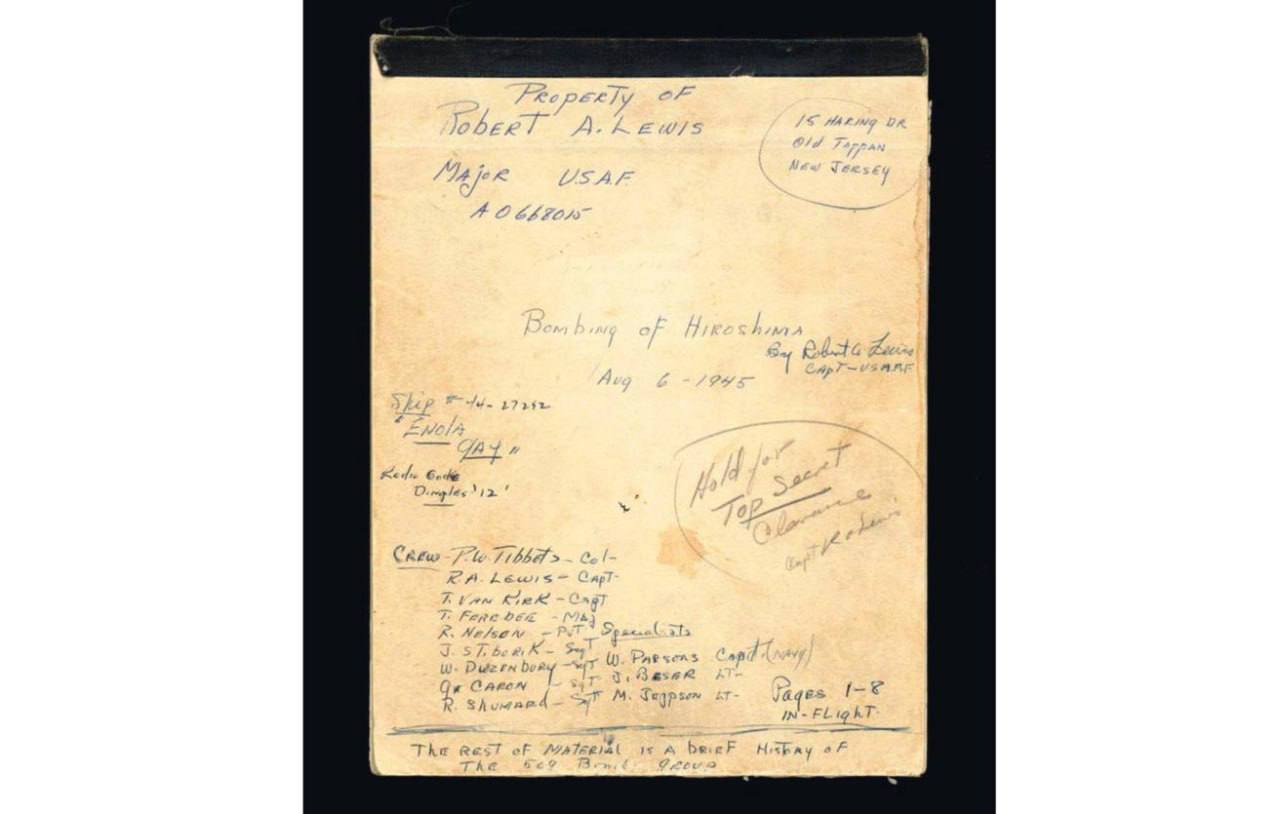 PROPERTY OF
ROBERT A. LEWIS
MAJOR U.S.A.F.
AO668015
15 HARING DR
Old TAPPAN
NEW JERSEY
BOMBING OF HIROSHIMA
By Robert A Lewis
CAPT-USAAF
Aug 6 - 1945
Ship # 44-27292
"ENOLA
GAY"
Dimples '12'
Hold for
Top Secret
Clearance
Capt R A Lewis
CREW - P.W. TIBBETS - Col-
R.A. LEWIS - CAPT-
T. VAN KIRK - CAPT
T. FEREBEE - MAJ
R. NELSON - PVT
J. STIBORIK - SGT
W. DUZENBURY - SGT
CARON - SGT
R. SHUMARD - SGT
Specialists
W. PARSONS Capt (NAVY)
J. BESER LT-
M. JEPPSON LT-
Pages 1-8
IN-FLIGHT.
THE REST OF MATERIAL IS A BRIEF HISTORY OF
THE 509 Bomb. GROUP